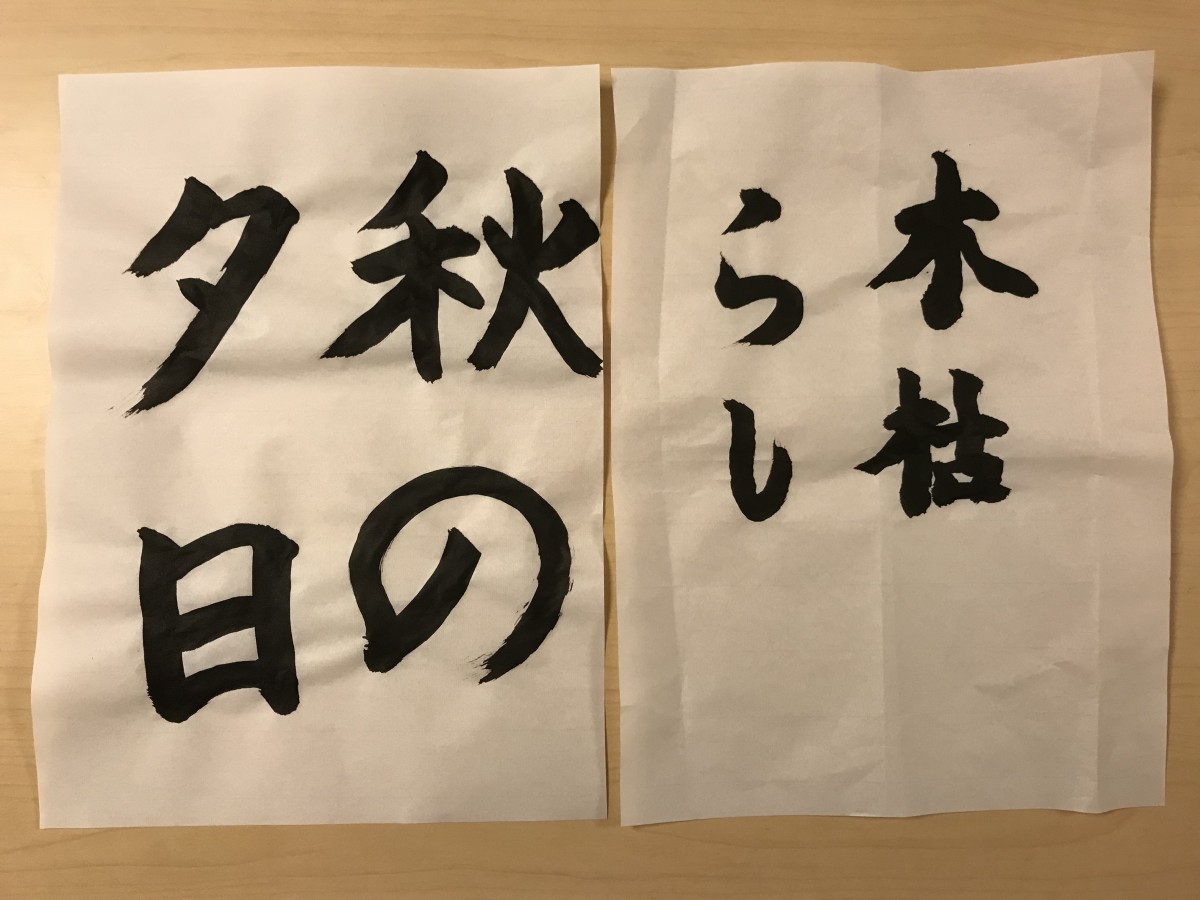 木枯
らし
秋の
夕日